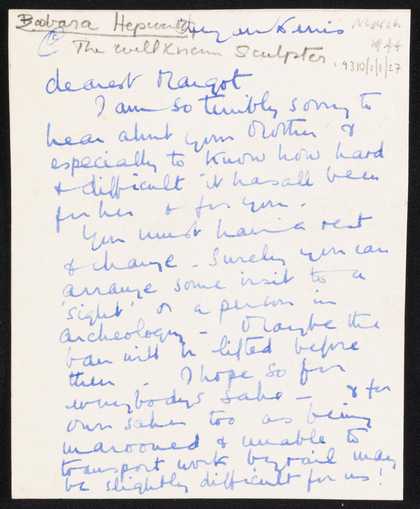 Barbara Hepworth
The well known Sculptor
March
1944
9310/1/1/27
dearest Margot.
I am so terribly sorry to
hear about your Mother &
especially to know how hard
& difficult it has all been
for her & for you.
You must have a rest
& change - Surely you can
arrange some visit to a
'sight' or a person in
archeology - Maybe the
ban will be lifted before
then - I hope so for
everybody's sake - & for
our sakes too as being
marooned & unable to
transport work by rail may
be slightly difficult for us!